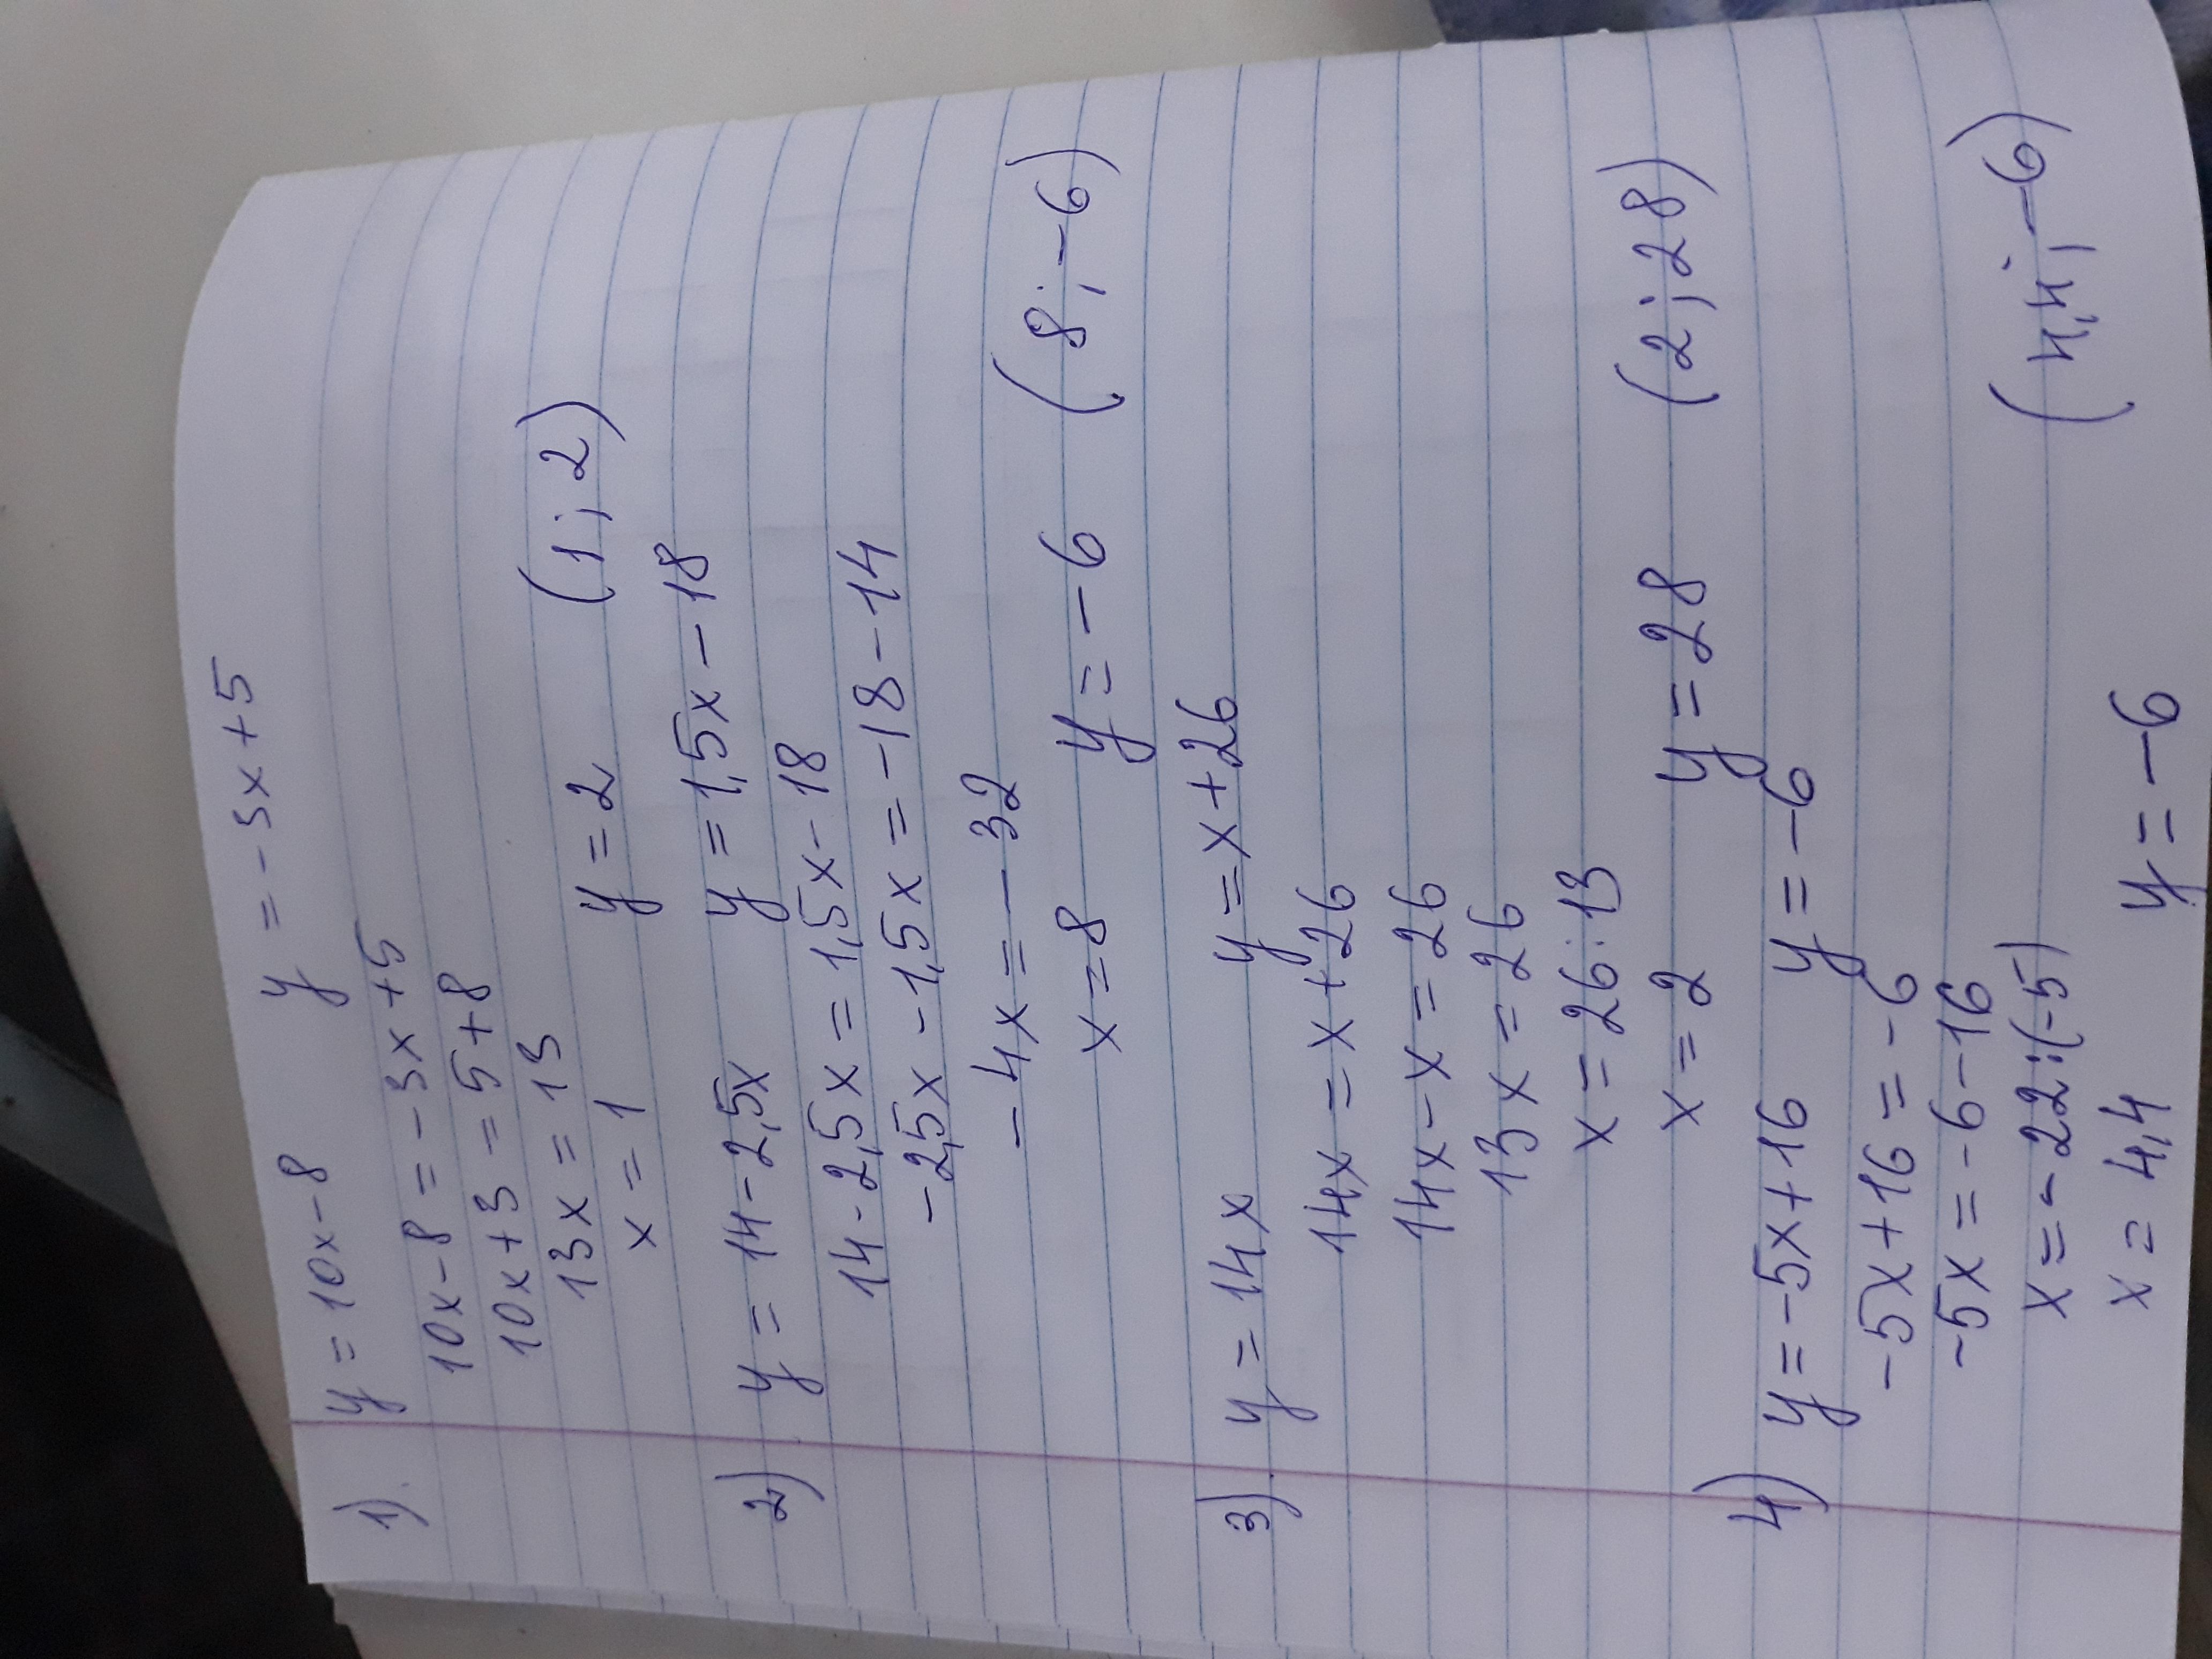 1). y = 10x - 8 y = -3x + 5
10x - 8 = -3x + 5
10x + 3 = 5 + 8
13x = 13
x = 1 y = 2 (1; 2)
2) y = 14 - 2,5x y = 1,5x - 18
14 - 2,5x = 1,5x - 18
-2,5x - 1,5x = -18 - 14
-4x = -32
x = 8 y = -6 (8; -6)
3). y = 14x y = x + 26
14x = x + 26
14x - x = 26
13x = 26
x = 26 : 13
x = 2 y = 28 (2; 28)
4) y = -5x + 16 y = -6
-5x + 16 = -6
-5x = -6 - 16
x = -22 : (-5)
x = 4,4 y = -6 (4,4; -6)